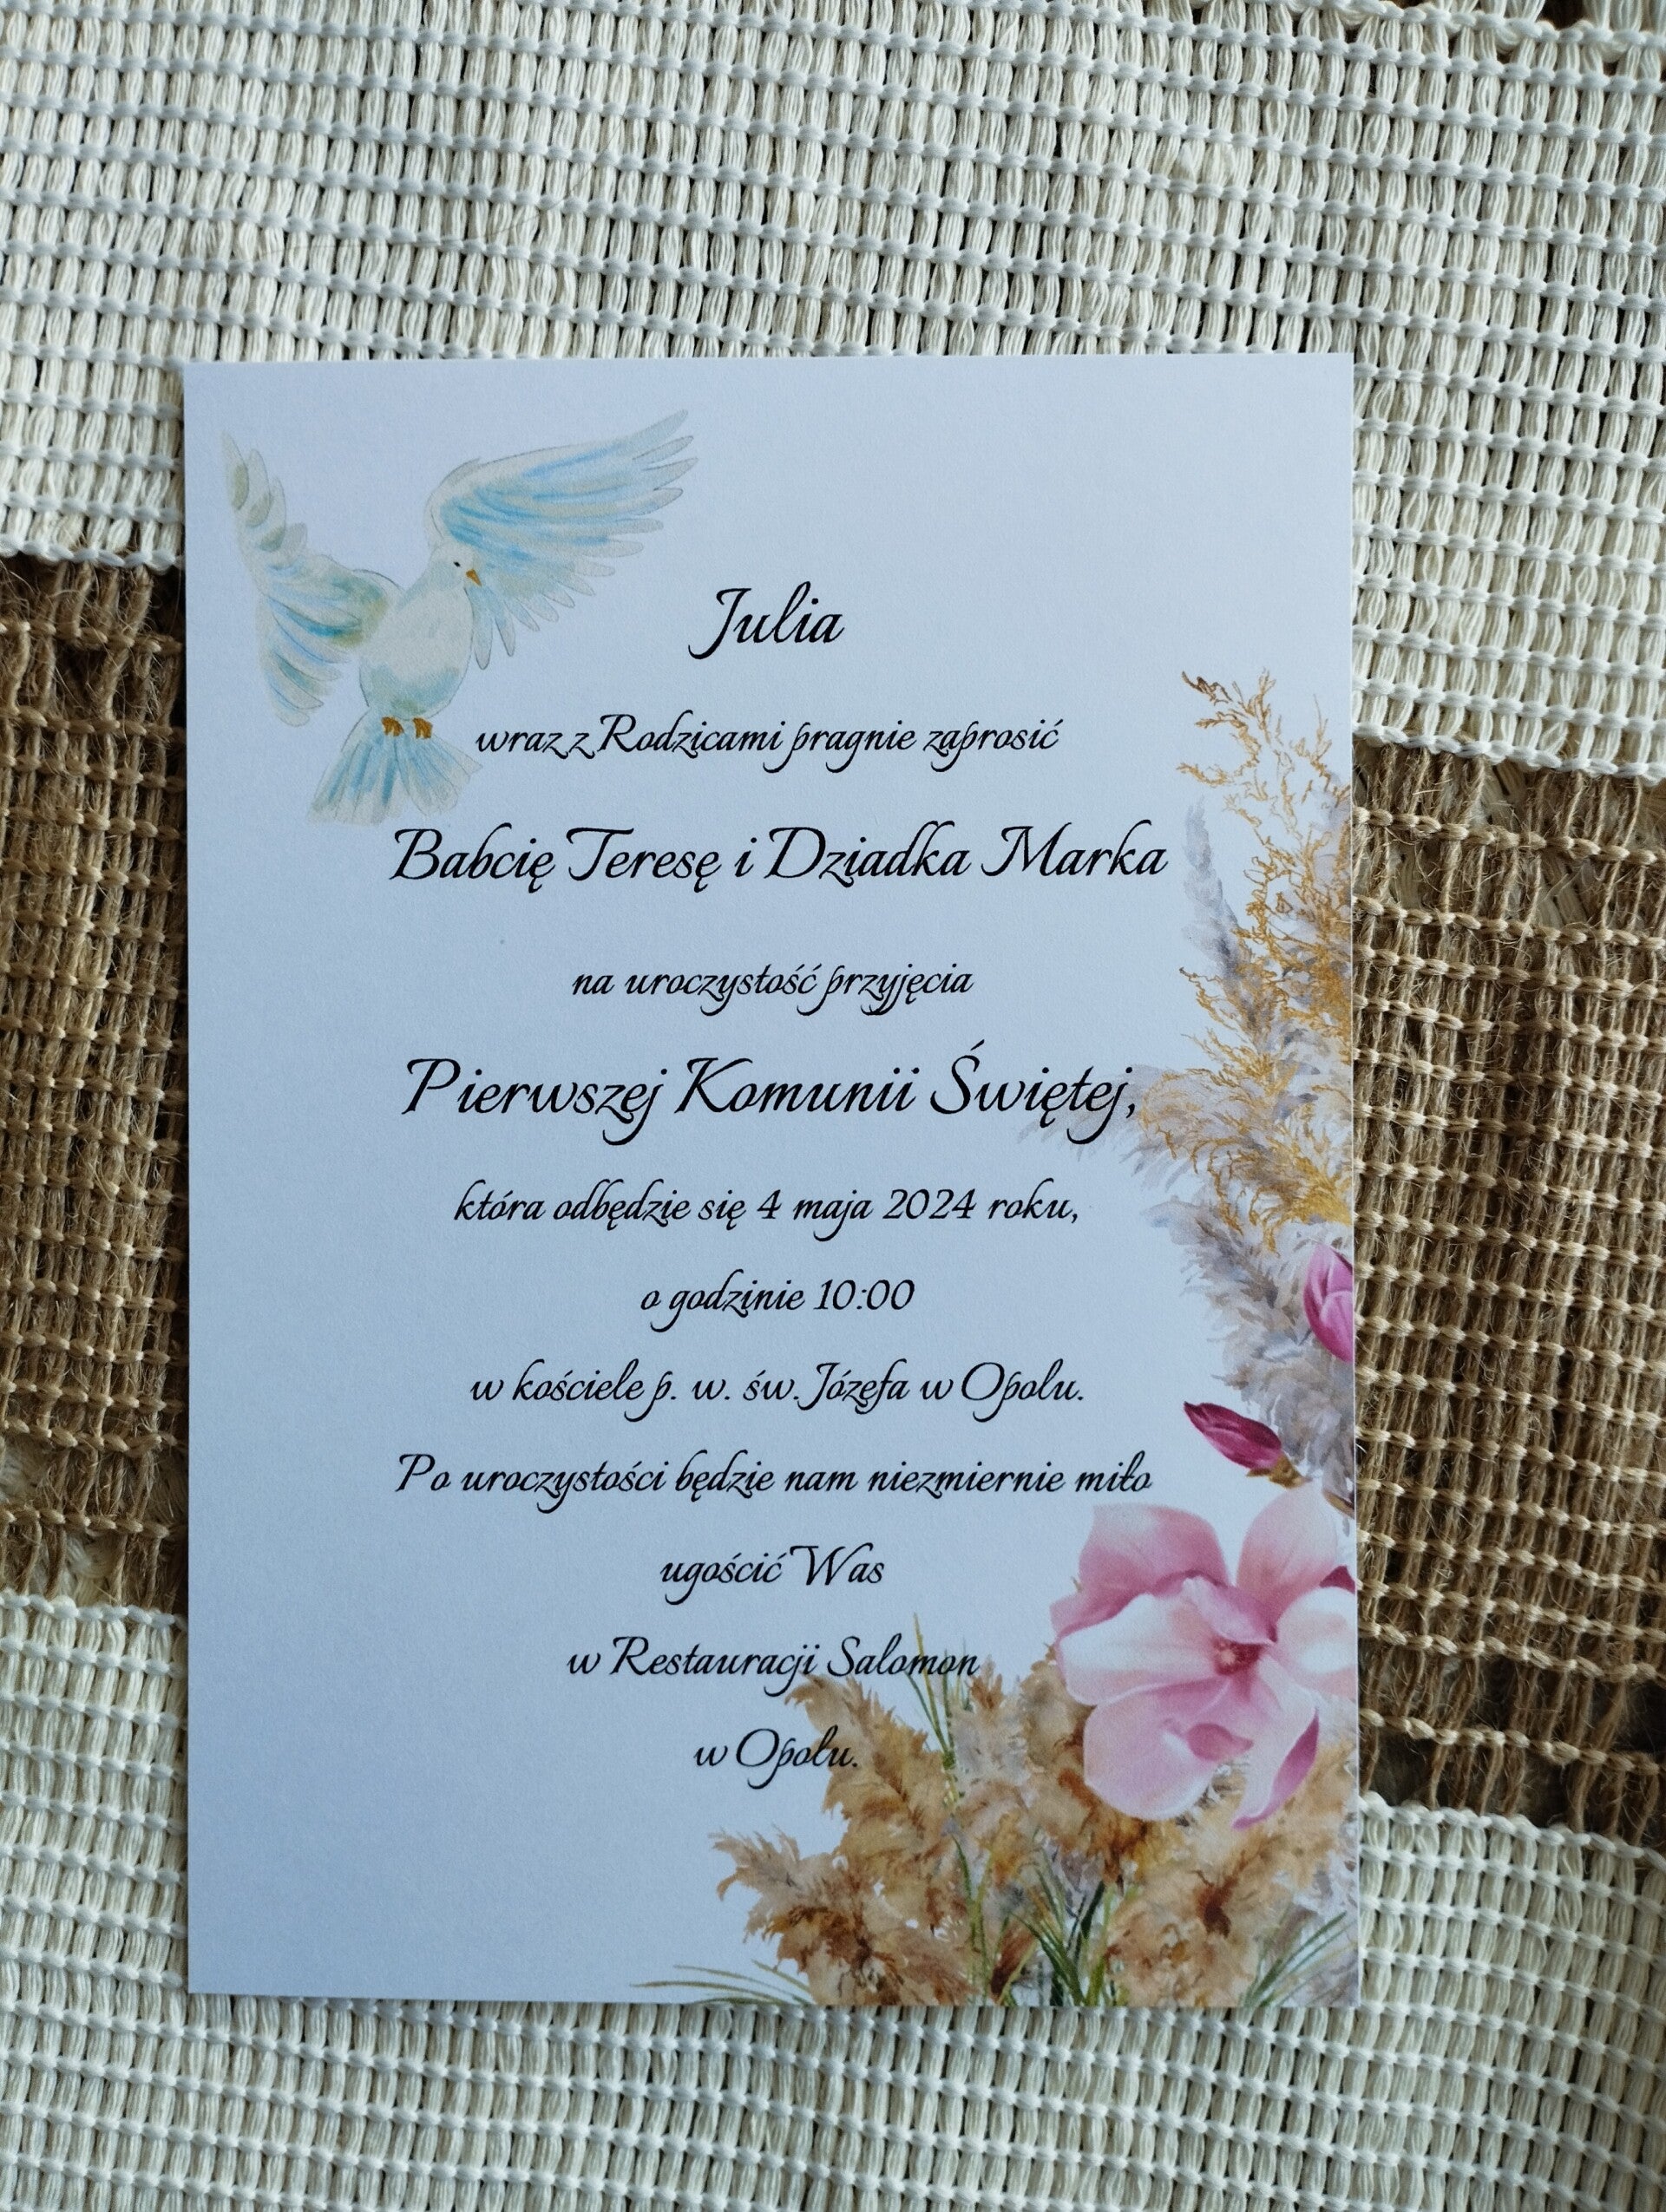 Julia
wraz z Rodzicami pragnie zaprosić
Babcię Teresę i Dziadka Marka
na uroczystość przyjęcia
Pierwszej Komunii Świętej,
która odbędzie się 4 maja 2024 roku,
o godzinie 10:00
w kościele p. w. św. Józefa w Opolu.
Po uroczystości będzie nam niezmiernie miło
ugościć Was
w Restauracji Salomon
w Opolu.